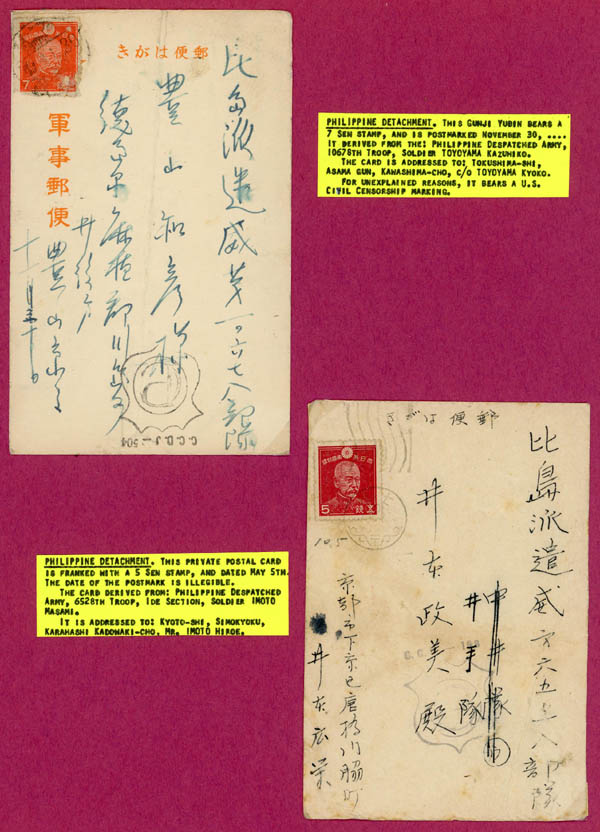 きがは便郵
7
軍事郵便
比島派遣威第一〇六七八部隊
豊山知彦様
徳島県麻植郡川島町
豊山
十一月三十日
C.C.D.J-504
PHILIPPINE DETACHMENT. THIS GUNJI YUBIN BEARS A
7 SEN STAMP, AND IS POSTMARKED NOVEMBER 30, ....
IT DERIVED FROM THE: PHILIPPINE DESPATCHED ARMY,
10678TH TROOP, SOLDIER TOYOYAMA KAZUHIKO.
THE CARD IS ADDRESSED TO: TOKUSHIMA-SHI,
ASAMA GUN, KAWASHIMA-CHO, C/O TOYOYAMA KYOKO.
FOR UNEXPLAINED REASONS, IT BEARS A U.S.
CIVIL CENSORSHIP MARKING.
きがは便郵
5
比島派遣威第六五二八部隊
中井隊
井手隊
井本政美殿
105
京都市下京区唐橋川脇町
井本広栄
PHILIPPINE DETACHMENT. THIS PRIVATE POSTAL CARD
IS FRANKED WITH A 5 SEN STAMP, AND DATED MAY 5TH.
THE DATE OF THE POSTMARK IS ILLEGIBLE.
THE CARD DERIVED FROM: PHILIPPINE DESPATCHED
ARMY, 6528TH TROOP, IDE SECTION, SOLDIER IMOTO
MASAMI.
IT IS ADDRESSED TO: KYOTO-SHI, SIMOKYOKU,
KARAHASHI KADOWAKI-CHO, MR. IMOTO HIROE.